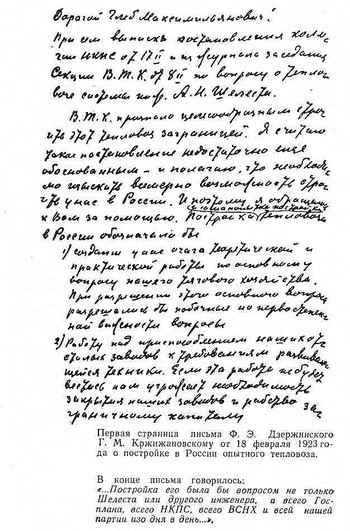 Дорогой Глеб Максимильянович!
При сем выписка постановления колле-
гии НКПС от 17 II и из журнала заседания
Секции В.Т.К. от 8 II по вопросу о теплово-
возе системы инж. А.Н. Шелеста.
В.Т.К. признало целесообразным строи-
ть этот тепловоз заграницей. Я считаю
такое постановление недостаточно еще
обоснованным - и полагаю, что необходи-
мо изыскать всемерно возможность строи-
ть у нас в России. И поэтому я обращаюсь
к Вам за помощью. Постройка тепловоза
в России обозначало бы
1) создание у нас очага теоретической и
практической работы по основному
вопросу нашего тягового хозяйства.
При разрешении этого основного вопроса
разрешались бы побочные но первостепен-
ной важности вопросы
2) Работу над приспособлением наших от-
сталых заводов к требованиям развиваю-
щейся техники. Если эта работа не будет
вестись нам угрожает необходимость
закрытия наших заводов и рабство за-
граничному капиталу
Первая страница письма Ф. Э. Дзержинского
Г. М. Кржижановскому от 18 февраля 1923 го-
да о постройке в России опытного тепловоза.
В конце письма говорилось:
«...Постройка его была бы вопросом не только
Шелеста или другого инженера, а всего Гос-
плана, всего НКПС, всего ВСНХ и всей нашей
партии изо дня в день...».